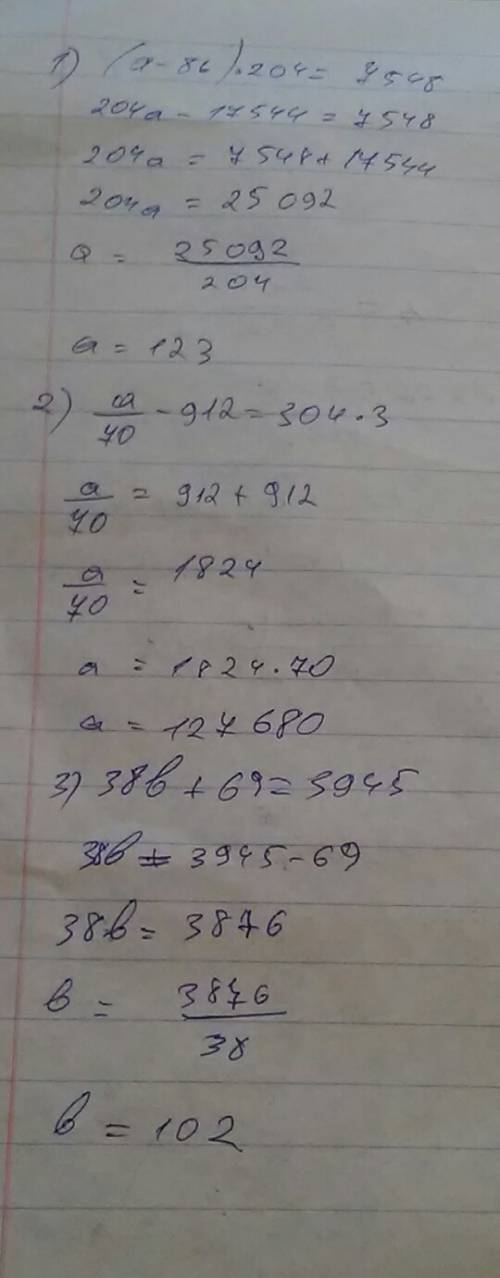 1) (a - 86) · 204 = 7548
204a - 17544 = 7548
204a = 7548 + 17544
204a = 25092
a = 25092 / 204
a = 123
2) a / 70 - 912 = 304 · 3
a / 70 = 912 + 912
a / 70 = 1824
a = 1824 · 70
a = 127680
3) 38b + 69 = 3945
38b = 3945 - 69
38b = 3876
b = 3876 / 38
b = 102